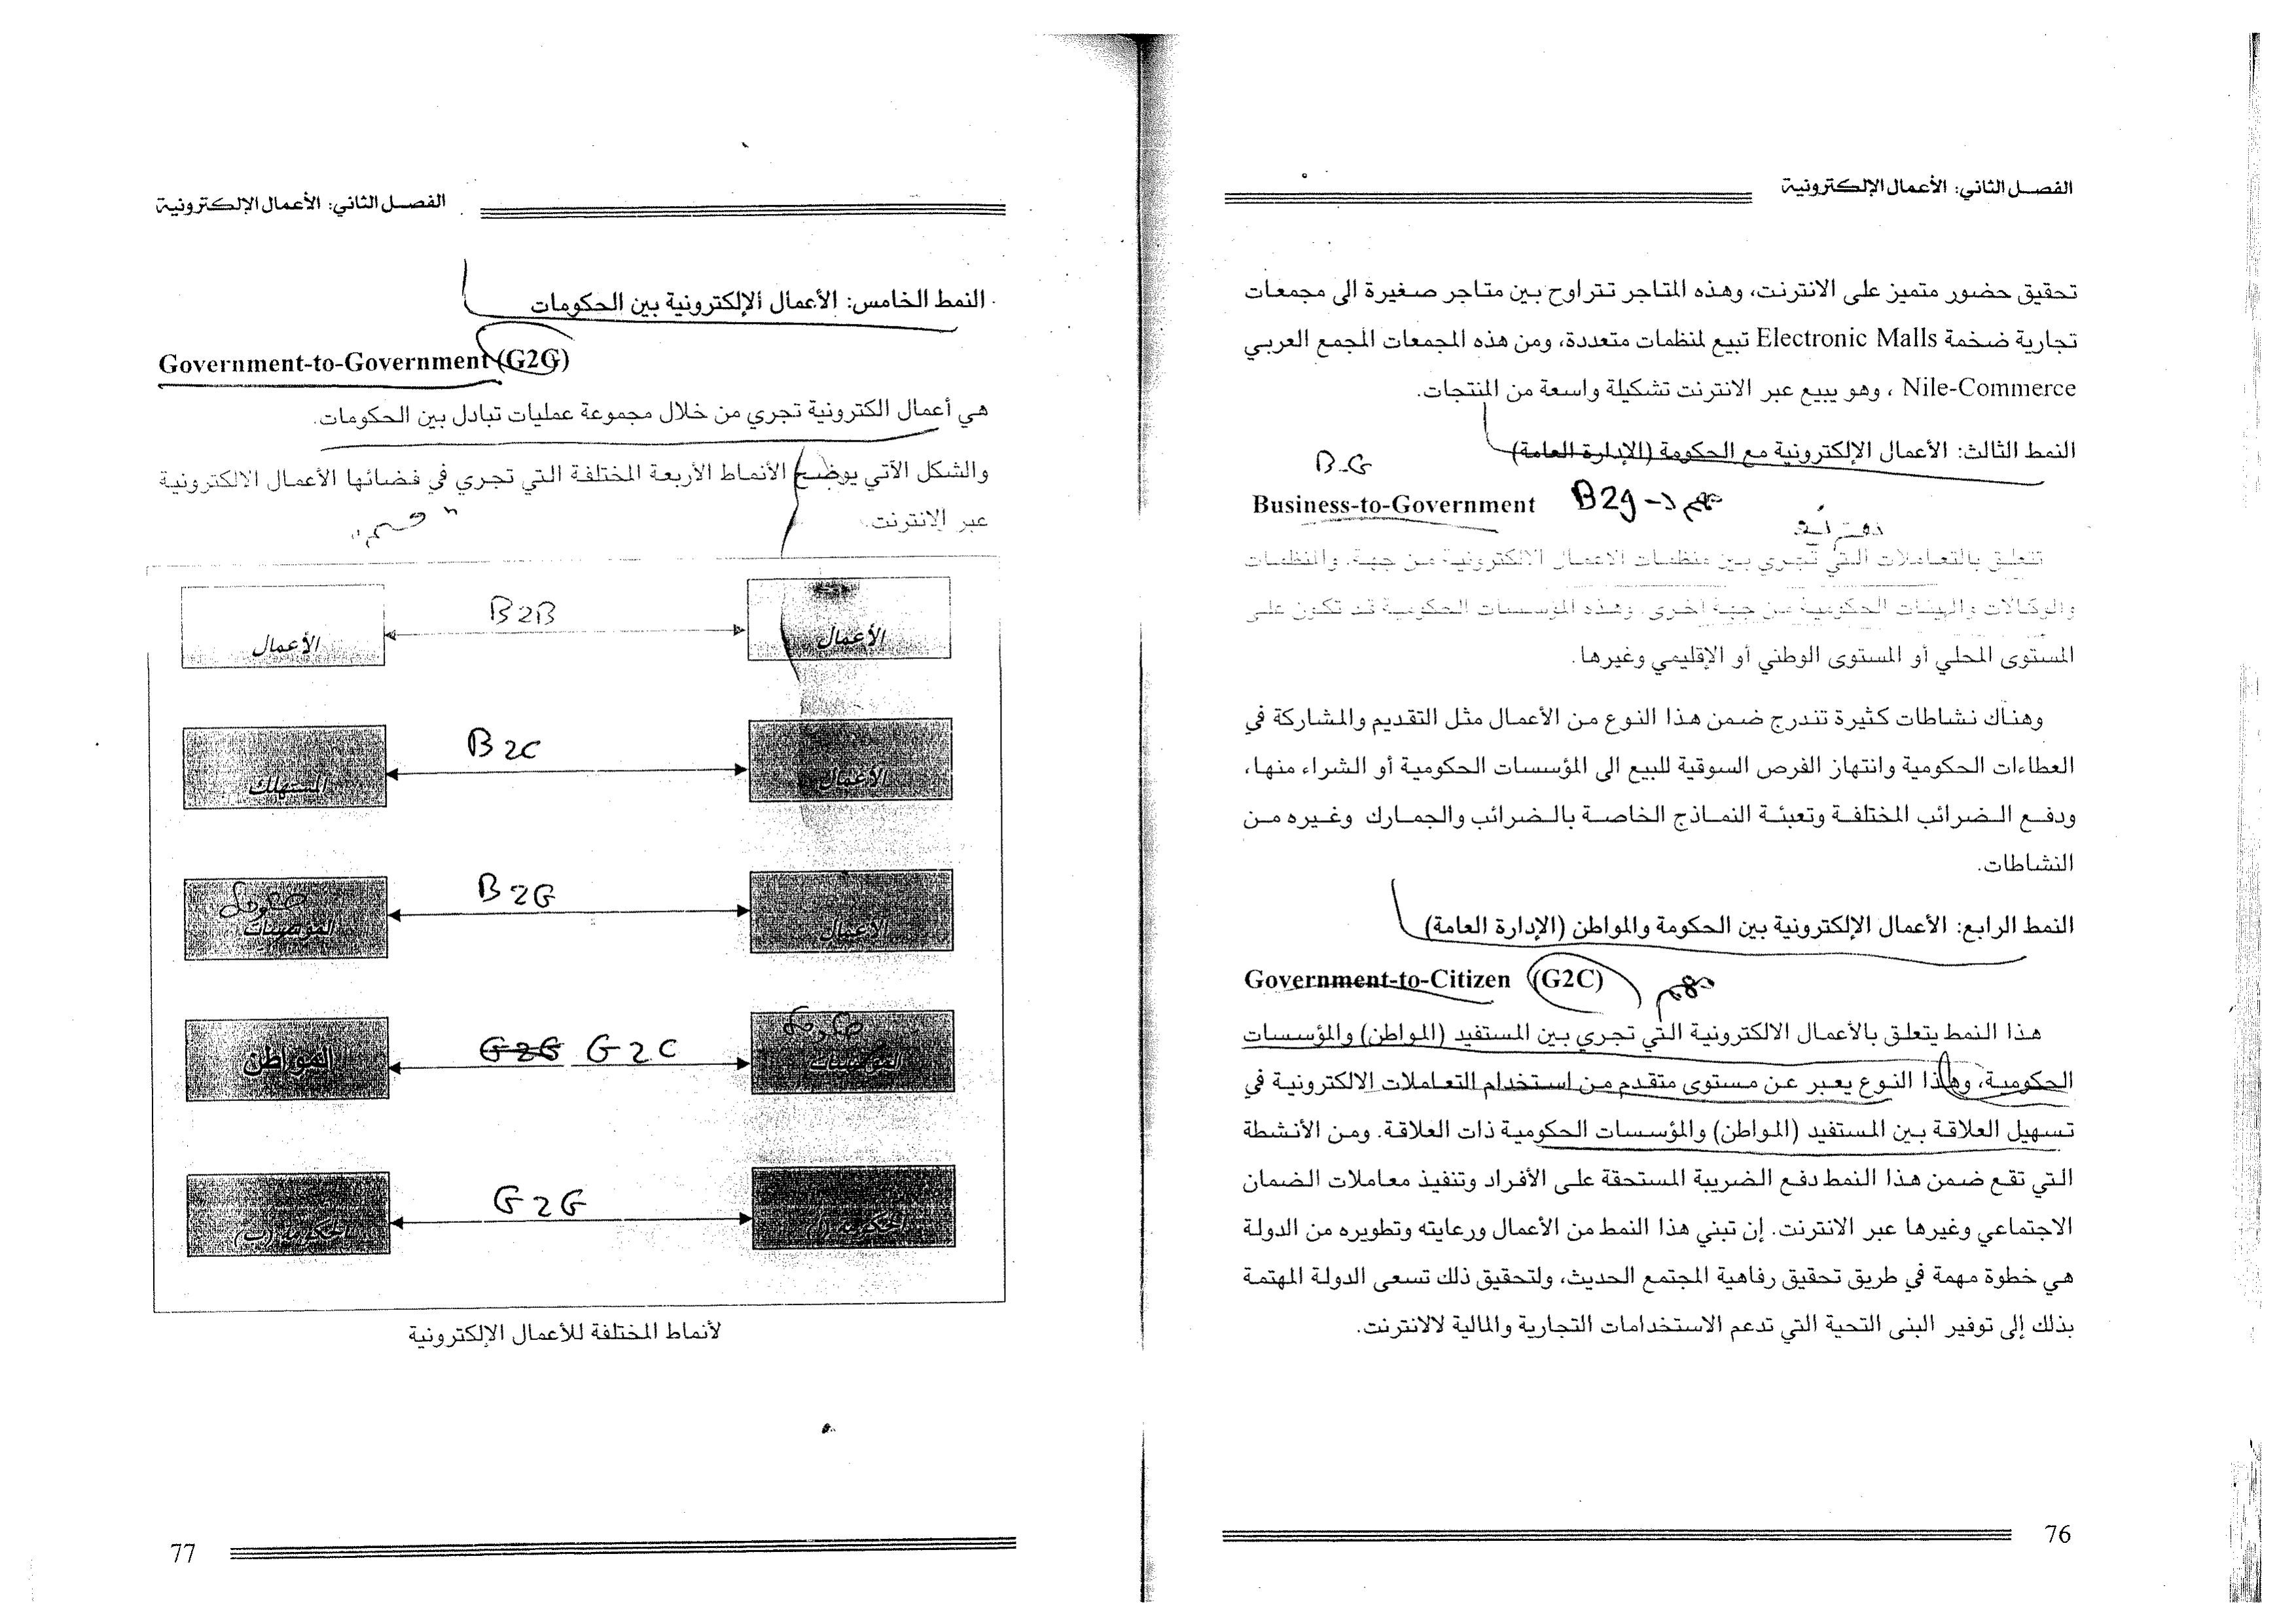 الفصل الثاني: الأعمال الإلكترونية
تحقيق حضور متميز على الانترنت، وهذه المتاجر تتراوح بين متاجر صغيرة الى مجمعات
تجارية ضخمة Electronic Malls تبيع لمنظمات متعددة، ومن هذه المجمعات المجمع العربي
Nile-Commerce ، وهو يبيع عبر الانترنت تشكيلة واسعة من المنتجات.
النمط الثالث: الأعمال الإلكترونية مع الحكومة (الإدارة العامة)
B-G
Business-to-Government B2g
تتعلق بالتعاملات التي تجري بين منظمات الاعمال الالكترونية من جهة. والمنظمات
والوكالات والهيئات الحكومية من جهة اخرى. وهذه المؤسسات الحكومية قد تكون على
المستوى المحلي أو المستوى الوطني أو الإقليمي وغيرها.
وهناك نشاطات كثيرة تندرج ضمن هذا النوع من الأعمال مثل التقديم والمشاركة في
العطاءات الحكومية وانتهاز الفرص السوقية للبيع الى المؤسسات الحكومية أو الشراء منها،
ودفع الضرائب المختلفة وتعبئة النماذج الخاصة بالضرائب والجمارك وغيره من
النشاطات.
النمط الرابع: الأعمال الإلكترونية بين الحكومة والمواطن (الإدارة العامة)
Government-to-Citizen (G2C)
هذا النمط يتعلق بالأعمال الالكترونية التي تجري بين المستفيد (المواطن) والمؤسسات
الحكومية، وهذا النوع يعبر عن مستوى متقدم من استخدام التعاملات الالكترونية في
تسهيل العلاقة بين المستفيد (المواطن) والمؤسسات الحكومية ذات العلاقة. ومن الأنشطة
التي تقع ضمن هذا النمط دفع الضريبة المستحقة على الأفراد وتنفيذ معاملات الضمان
الاجتماعي وغيرها عبر الانترنت. إن تبني هذا النمط من الأعمال ورعايته وتطويره من الدولة
هي خطوة مهمة في طريق تحقيق رفاهية المجتمع الحديث، ولتحقيق ذلك تسعى الدولة المهتمة
بذلك إلى توفير البنى التحية التي تدعم الاستخدامات التجارية والمالية لالانترنت.
76
الفصل الثاني: الأعمال الإلكترونية
النمط الخامس: الأعمال الإلكترونية بين الحكومات
Government-to-Government (G2G)
هي أعمال الكترونية تجري من خلال مجموعة عمليات تبادل بين الحكومات.
والشكل الآتي يوضح الأنماط الأربعة المختلفة التي تجري في فضائها الأعمال الالكترونية
عبر الانترنت.
الأعمال B2B الأعمال
الأعمال B2C المستهلك
الأعمال B2G المؤسسات
المؤسسات G2C G2G المواطن
الحكومة (أ) G2G الحكومة (ب)
لأنماط المختلفة للأعمال الإلكترونية
77